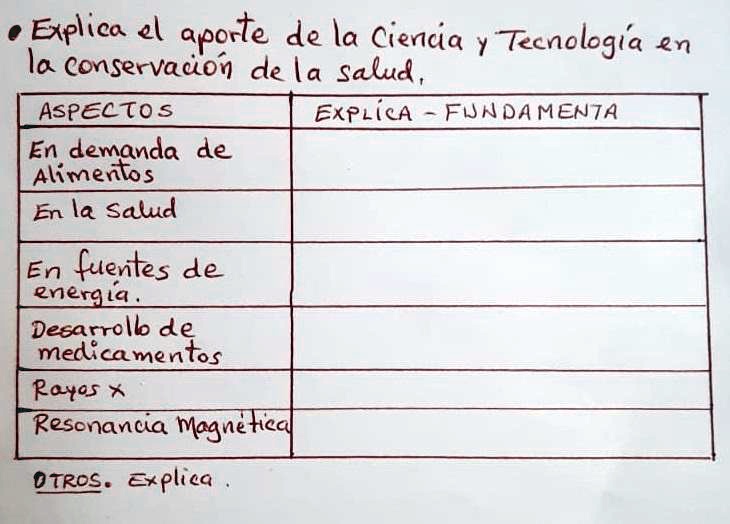 • Explica el aporte de la Ciencia y Tecnología en
la conservación de la salud.
ASPECTOS
EXPLICA - FUNDAMENTA
En demanda de
Alimentos
En la Salud
En fuentes de
energía.
Desarrollo de
medicamentos
Rayos x
Resonancia Magnética
OTROS. Explica.